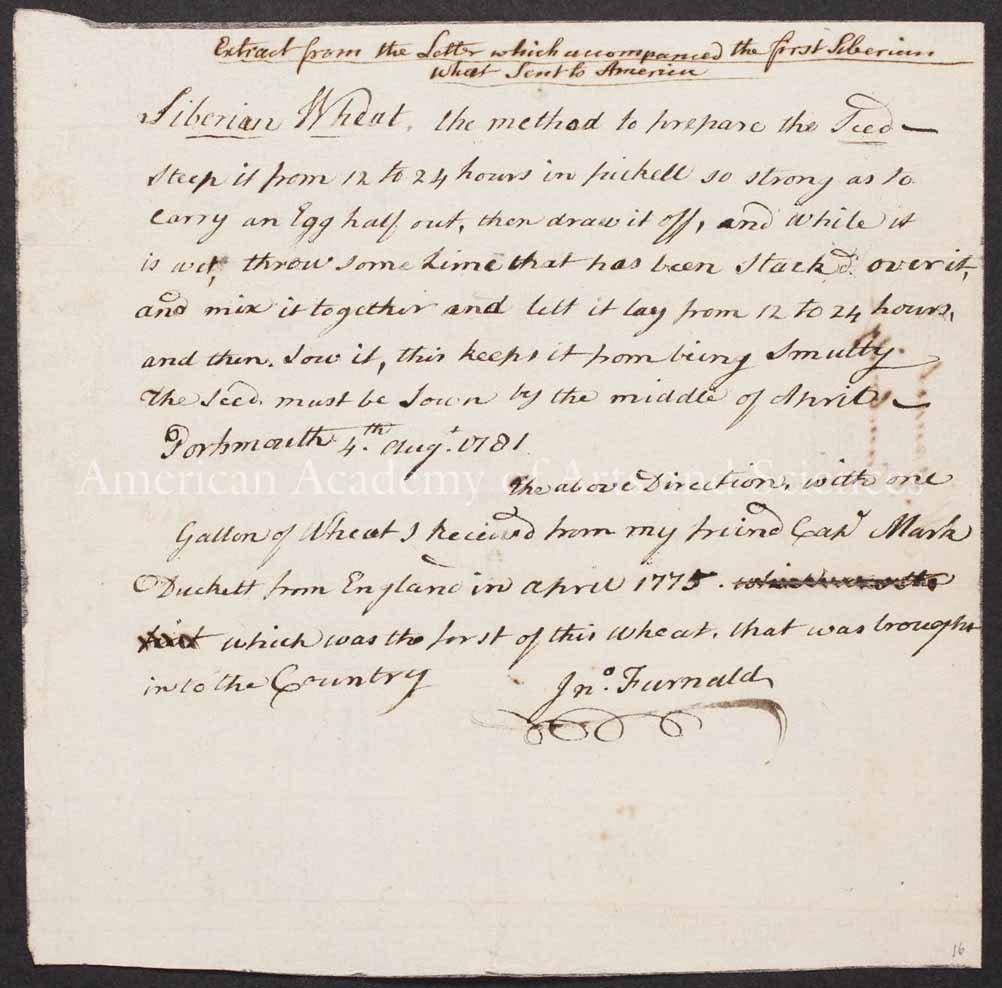 Extract from the Letter which accompanied the first Siberian
Wheat Sent to America
Siberian Wheat, the method to prepare the Seed
Steep it from 12 to 24 hours in pickell so strong as to
Carry an Egg half out, then draw it off, and while it
is wet, throw some Lime that has been Slack'd over it,
and mix it together and lett it lay from 12 to 24 hours,
and then Sow it, this keeps it from being Smutty
The Seed must be Sown by the middle of April
Portsmouth 4th Augt. 1781
American Academy of Arts and Sciences
the above Direction, with one
Gallon of Wheat I Receivd from my friend Capt Mark
Duckett from England in april 1775.
which was the first of this Wheat, that was brought
in to the Country
Jno. Furnald
16